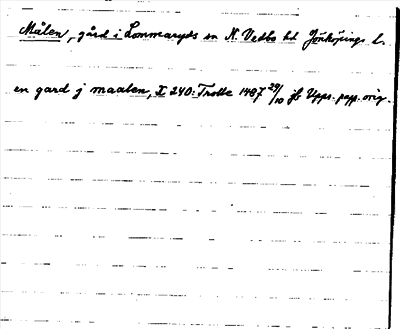 Målen, gård i Lommaryds sn N. Vedbo hd Jönköpings l.
en gard j maalen, X 240: Trolle 1497 29/10 jb Upps. papp. orig.